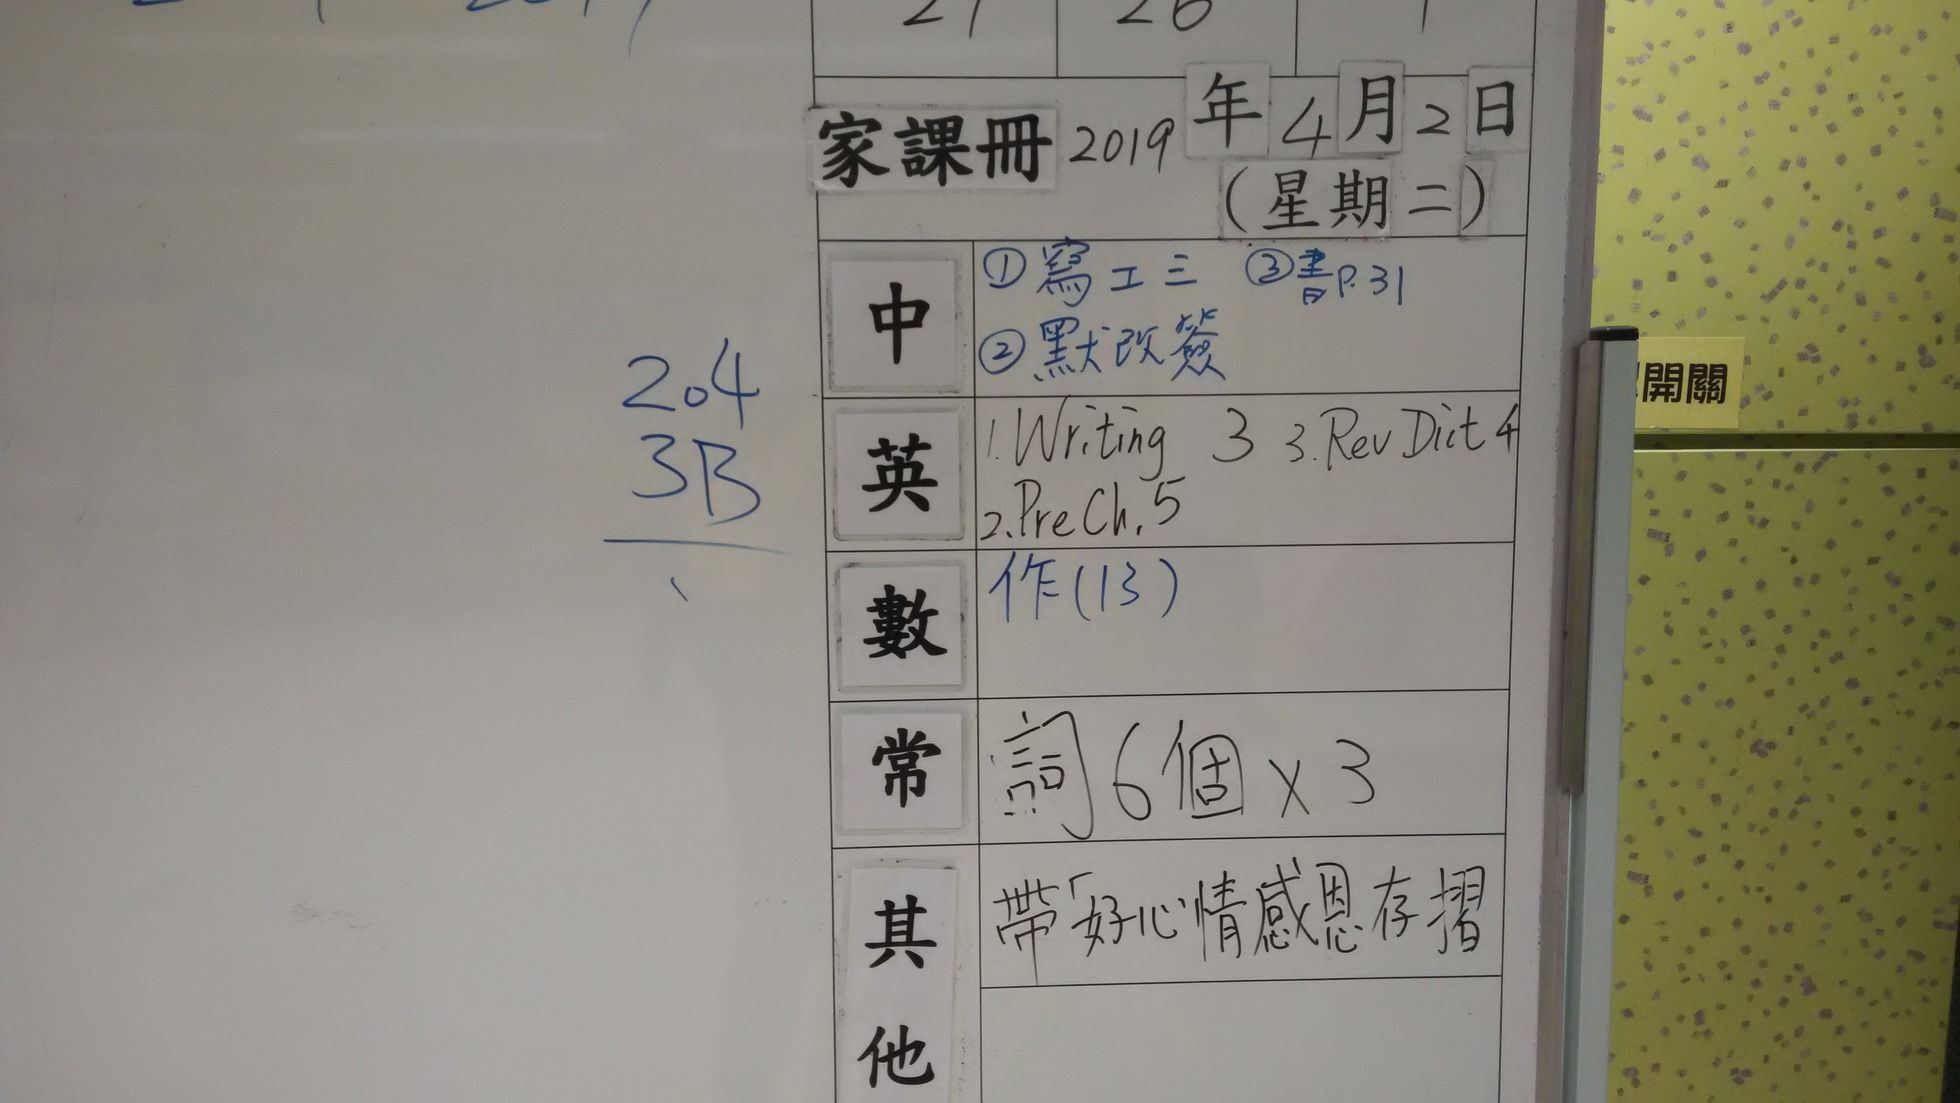 27 26 1
家課冊 2019年4月2日
(星期二)
中
①寫工三 ③書P.31
②默改簽
英
1.Writing 3 3.Rev Dict 4
2.Pre Ch.5
數
作(13)
常
詞6個x3
其他
帶「好心情感恩存摺
2.4
3B
開關